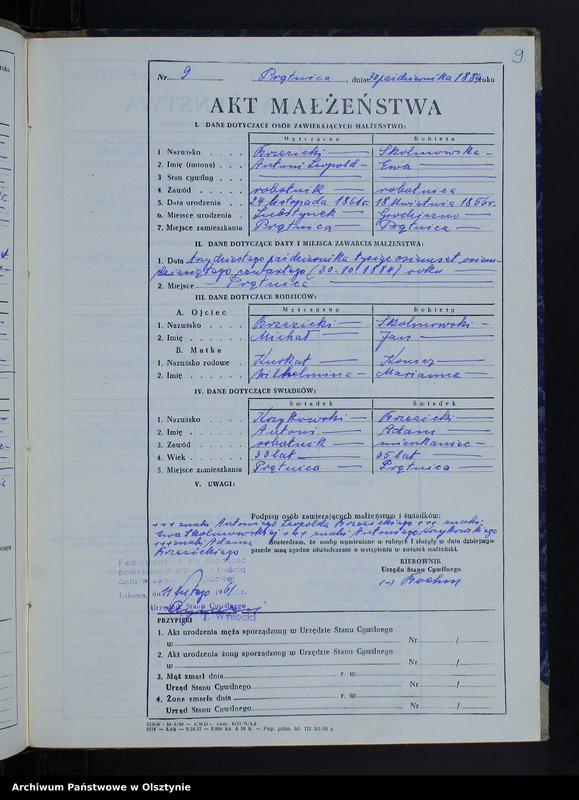 9
Nr 9 Prątnica, dnia 30 października 1884 roku
AKT MAŁŻEŃSTWA
I. DANE DOTYCZĄCE OSÓB ZAWIERAJĄCYCH MAŁŻEŃSTWO:
Mężczyzna Kobieta
1. Nazwisko Brzezicki Skolmowska
2. Imię (imiona) Antoni Leopold Ewa
3. Stan cywilny
4. Zawód robotnik robotnica
5. Data urodzenia 24 listopada 1861 r. 18 kwietnia 1856 r.
6. Miejsce urodzenia Lubstynek Grodziczno
7. Miejsce zamieszkania Prątnica Prątnica
II. DANE DOTYCZĄCE DATY I MIEJSCA ZAWARCIA MAŁŻEŃSTWA:
1. Data trzydziestego października tysiąc osiemset osiem-
dziesiątego czwartego (30.10.1884) roku
2. Miejsce Prątnica
III. DANE DOTYCZĄCE RODZICÓW:
A. Ojciec Mężczyzny Kobiety
1. Nazwisko Brzezicki Skolmowski
2. Imię Michał Jan
B. Matka
1. Nazwisko rodowe Kurkat Konicz
2. Imię Wilhelmina Marianna
IV. DANE DOTYCZĄCE ŚWIADKÓW:
Świadek Świadek
1. Nazwisko Krzykowski Brzezicki
2. Imię Antoni Adam
3. Zawód robotnik mieszkaniec
4. Wiek 33 lat 35 lat
5. Miejsce zamieszkania Prątnica Prątnica
V. UWAGI:
Podpisy osób zawierających małżeństwo i świadków:
+++ znaki Antoniego Leopolda Brzezickiego +++ znaki
Ewa Skolmowskiej +++ znaki Antoniego Krzykowskiego
+++ znaki Adama Brzezickiego
Stwierdzam, że osoby wymienione w rubryce I złożyły w dniu dzisiejszym
przede mną zgodne oświadczenie o wstąpieniu w związek małżeński.
KIEROWNIK
Urzędu Stanu Cywilnego
(-) Boehm
Lubawa, dn. 11 lutego 1961 r.
Urzędnik Stanu Cywilnego
T. Wysocki
PRZYPISKI
1. Akt urodzenia męża sporządzony w Urzędzie Stanu Cywilnego
w Nr /
2. Akt urodzenia żony sporządzony w Urzędzie Stanu Cywilnego
w Nr /
3. Mąż zmarł dnia r. w
Urząd Stanu Cywilnego Nr /
4. Żona zmarła dnia r. w
Urząd Stanu Cywilnego Nr /
Archiwum Państwowe w Olsztynie